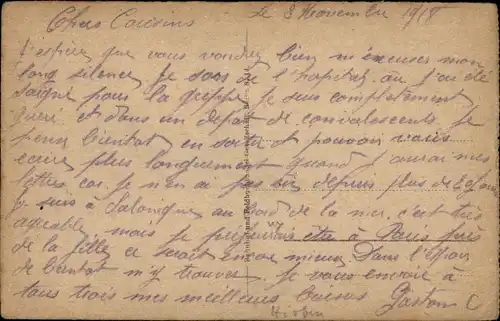 Le 8 Novembre 1918
Chers Cousins
J'espère que vous voudrez bien m'excuser mon
long silence je sors de l'hopital ou j'ai été
soigné pour la grippe je suis completement
gueri et dans un depot de convalescents. Je
pense bientot en sortir et pouvoir vous
ecrire plus longuement quand j'aurai mes
lettres car je n'en ai pas eu depuis plus de
je suis à Salonique au bord de la mer. c'est très
agreable mais je prefererais être à Paris près
de la fille ce serait encore mieux. Dans l'espoir
de bientot m'y trouver. je vous envoie à
tous trois mes meilleurs baisers Gaston C